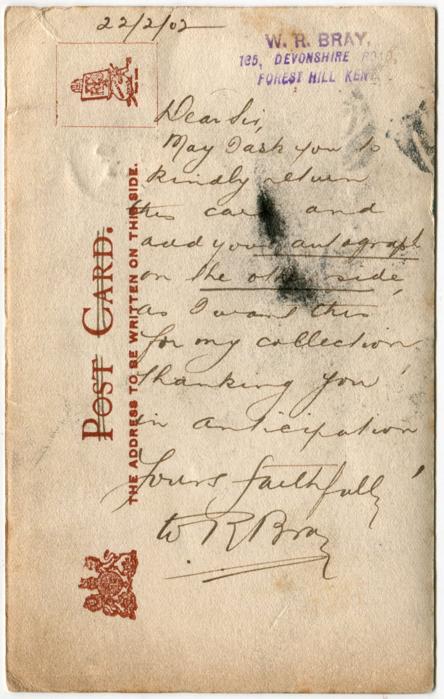 22/2/02
W. R. BRAY,
165, DEVONSHIRE ROAD,
FOREST HILL KENT.
Dear Sir,
May I ask you to
kindly return
this card and
add your autograph
on the other side,
as I want this
for my collection,
thanking you
in anticipation
Yours faithfully
W R Bray
POST CARD.
THE ADDRESS TO BE WRITTEN ON THIS SIDE.